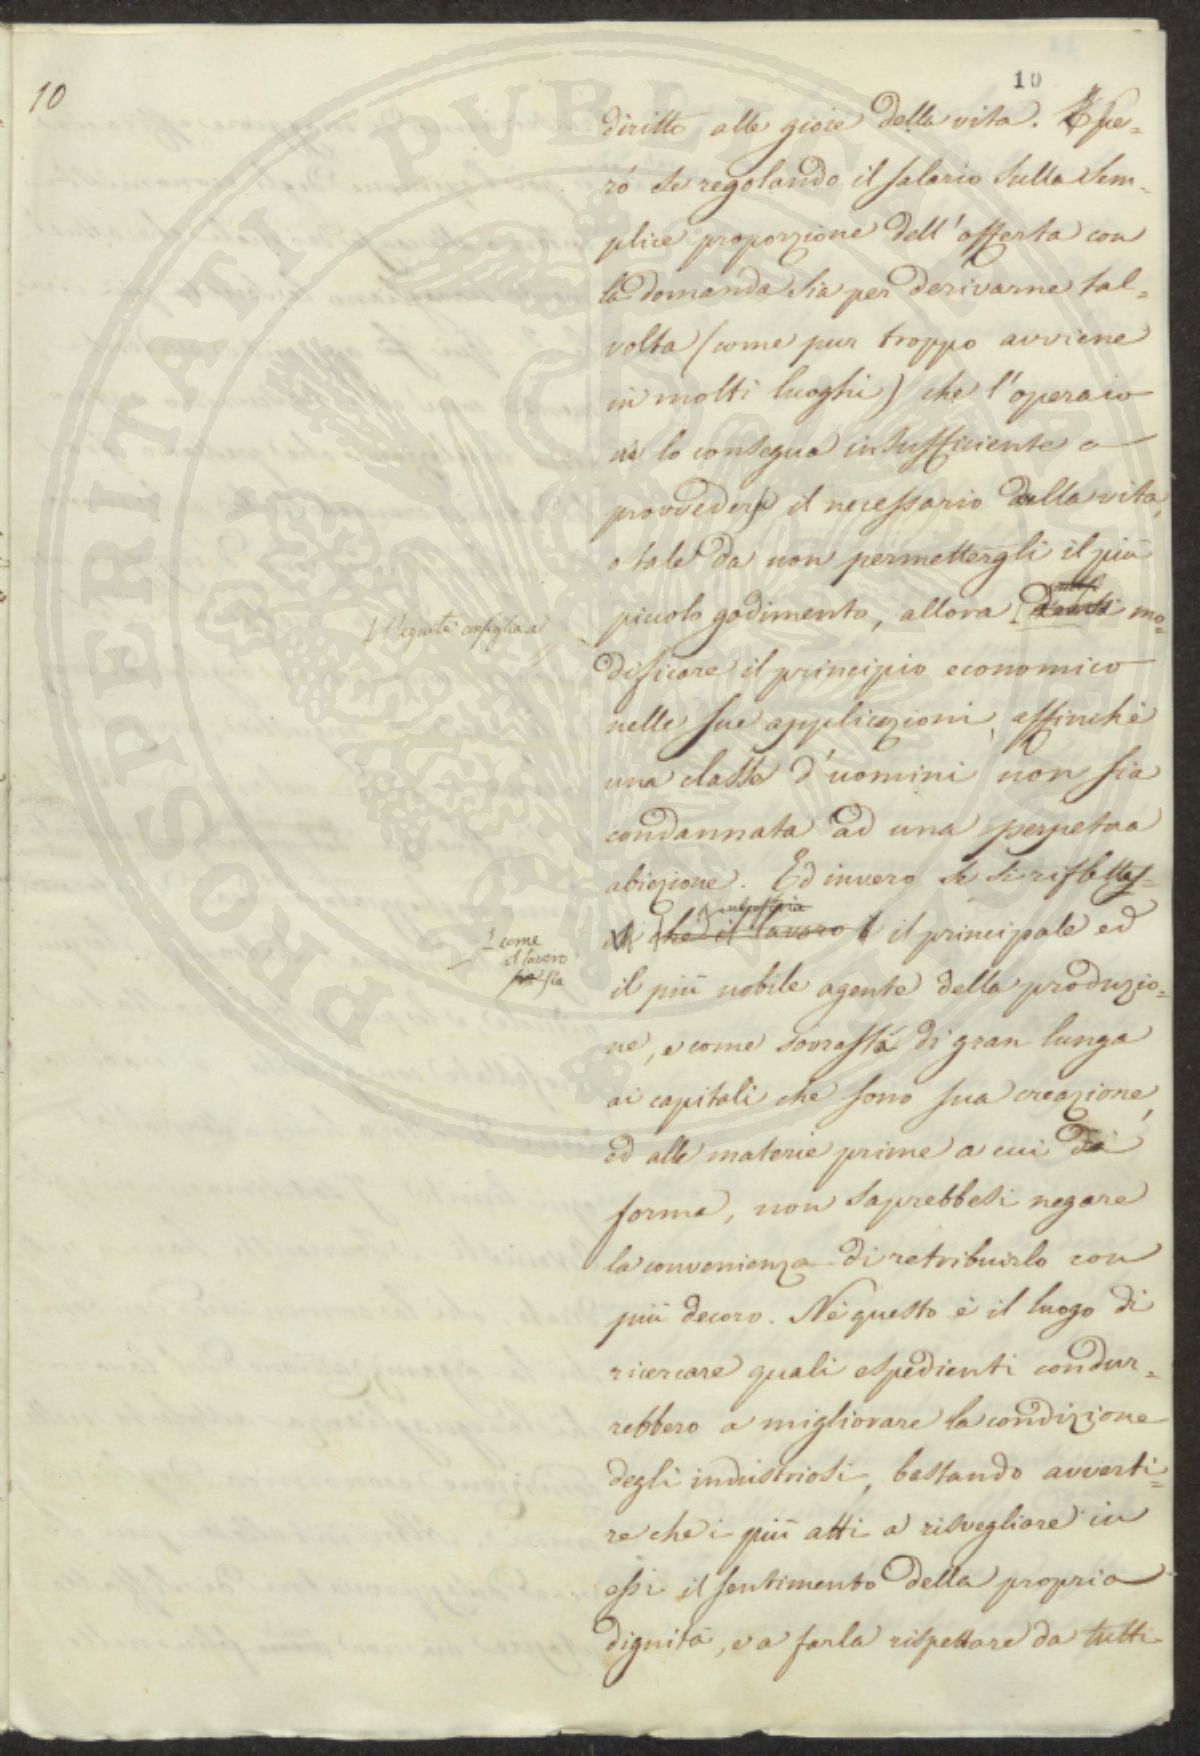 10
10
diritto alle gioie della vita. E pe=
rò se regolando il salario sulla sem=
plice proporzione dell'offerta con
la domanda sia per derivarne tal=
volta (come pur troppo avviene
in molti luoghi) che l'operaio
lo consegua insufficiente a
provvedere il necessario della vita,
o tale da non permettergli il più
piccolo godimento, allora mo=
l'equità consiglia a
dificare il principio economico
nelle sue applicazioni, affinchè
una classe d'uomini non sia
condannata ad una perpetua
abiezione. Ed invero se si riflettes=
si che il lavoro il principale ed
come
il lavoro
sia
il più nobile agente della produzio=
ne, e come sovrasta di gran lunga
ai capitali che sono sua creazione,
ed alle materie prime a cui dà
forma, non saprebbesi negare
la convenienza di retribuirlo con
più decoro. Nè questo è il luogo di
ricercare quali espedienti condur=
rebbero a migliorare la condizione
degli industriosi, bastando avverti=
re che i più atti a risvegliare in
essi il sentimento della propria
dignità, e a farla rispettare da tutti
PROSPERITATI PUBLICAE